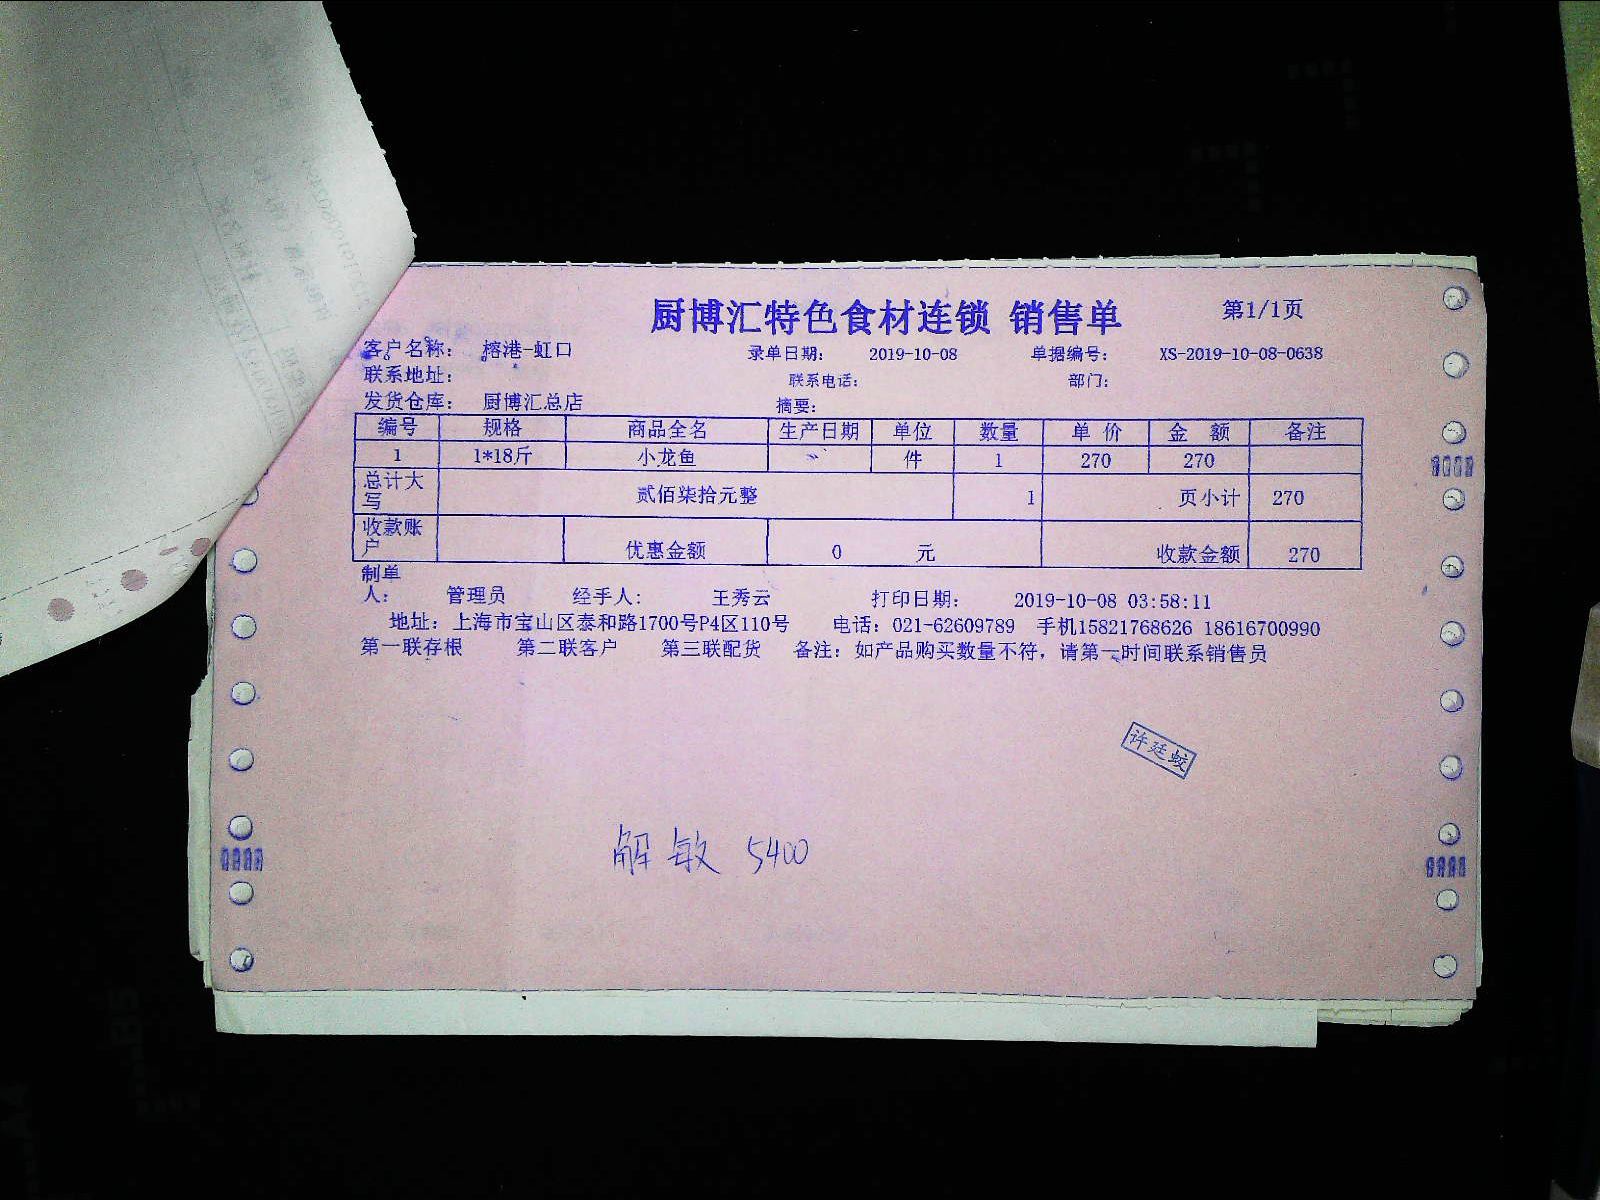 厨博汇特色食材连锁 销售单 第1/1页
客户名称： 榕港-虹口 录单日期： 2019-10-08 单据编号： XS-2019-10-08-0638
联系地址： 联系电话： 部门：
发货仓库： 厨博汇总店 摘要：
编号 规格 商品全名 生产日期 单位 数量 单 价 金 额 备注
1 1*18斤 小龙鱼 件 1 270 270
总计大写 贰佰柒拾元整 1 页小计 270
收款账户 优惠金额 0 元 收款金额 270
制单人： 管理员 经手人： 王秀云 打印日期： 2019-10-08 03:58:11
地址：上海市宝山区泰和路1700号P4区110号 电话：021-62609789 手机15821768626 18616700990
第一联存根 第二联客户 第三联配货 备注：如产品购买数量不符，请第一时间联系销售员
许廷蛟
解敏 5400